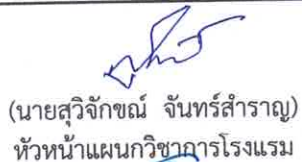 (นายสุวิจักขณ์ จันทร์สำราญ)
หัวหน้าแผนกวิชาการโรงแรม